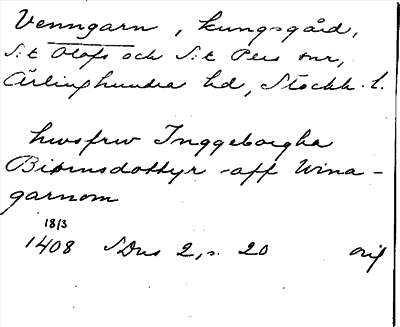 Venngarn, kungsgård,
S:t Olofs och S:t Pers snr,
Ärlinghundra hd, Stockh. l.
hwsfrw Inggeborgha
Biørnsdottyr aff Wina-
garnom
18/3
1408 SDns 2, s. 20 orig